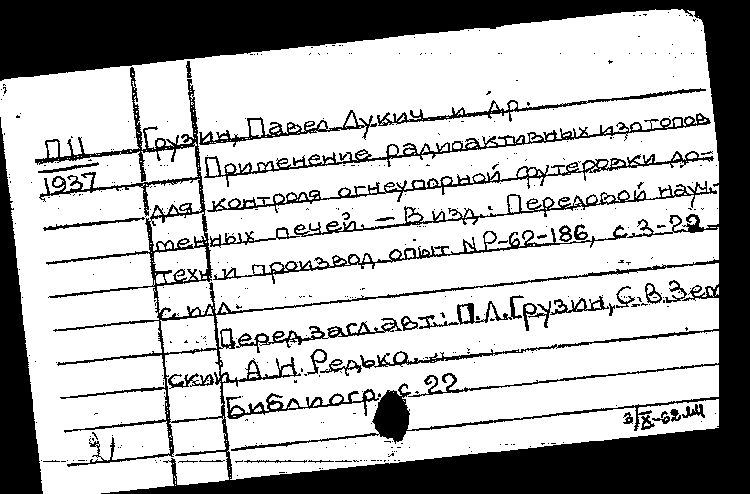 П11
1937
Грузин, Павел Лукич и др.
Применение радиоактивных изотопов
для контроля огнеупорной футеровки до=
менных печей. – В изд.: Передовой науч.-
техн. и производ. опыт. N Р-62-186, с. 3-22
с илл.
Перед загл. авт.: П.Л. Грузин, С.В. Зем
ский, А.Н. Редько.
Библиогр. с. 22.
21
3/X-62